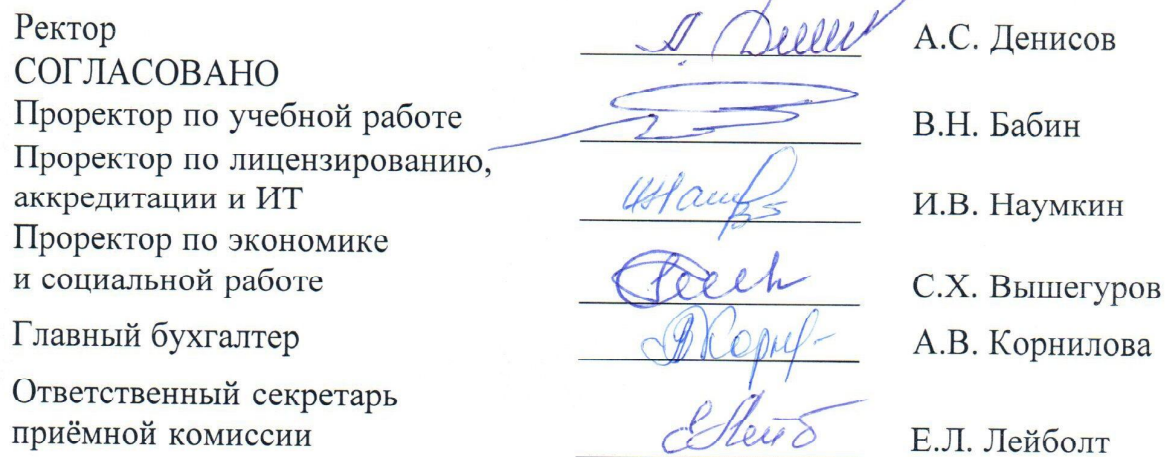 Ректор А.С. Денисов
СОГЛАСОВАНО
Проректор по учебной работе В.Н. Бабин
Проректор по лицензированию,
аккредитации и ИТ И.В. Наумкин
Проректор по экономике
и социальной работе С.Х. Вышегуров
Главный бухгалтер А.В. Корнилова
Ответственный секретарь
приёмной комиссии Е.Л. Лейболт